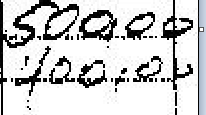 500,00
400,00